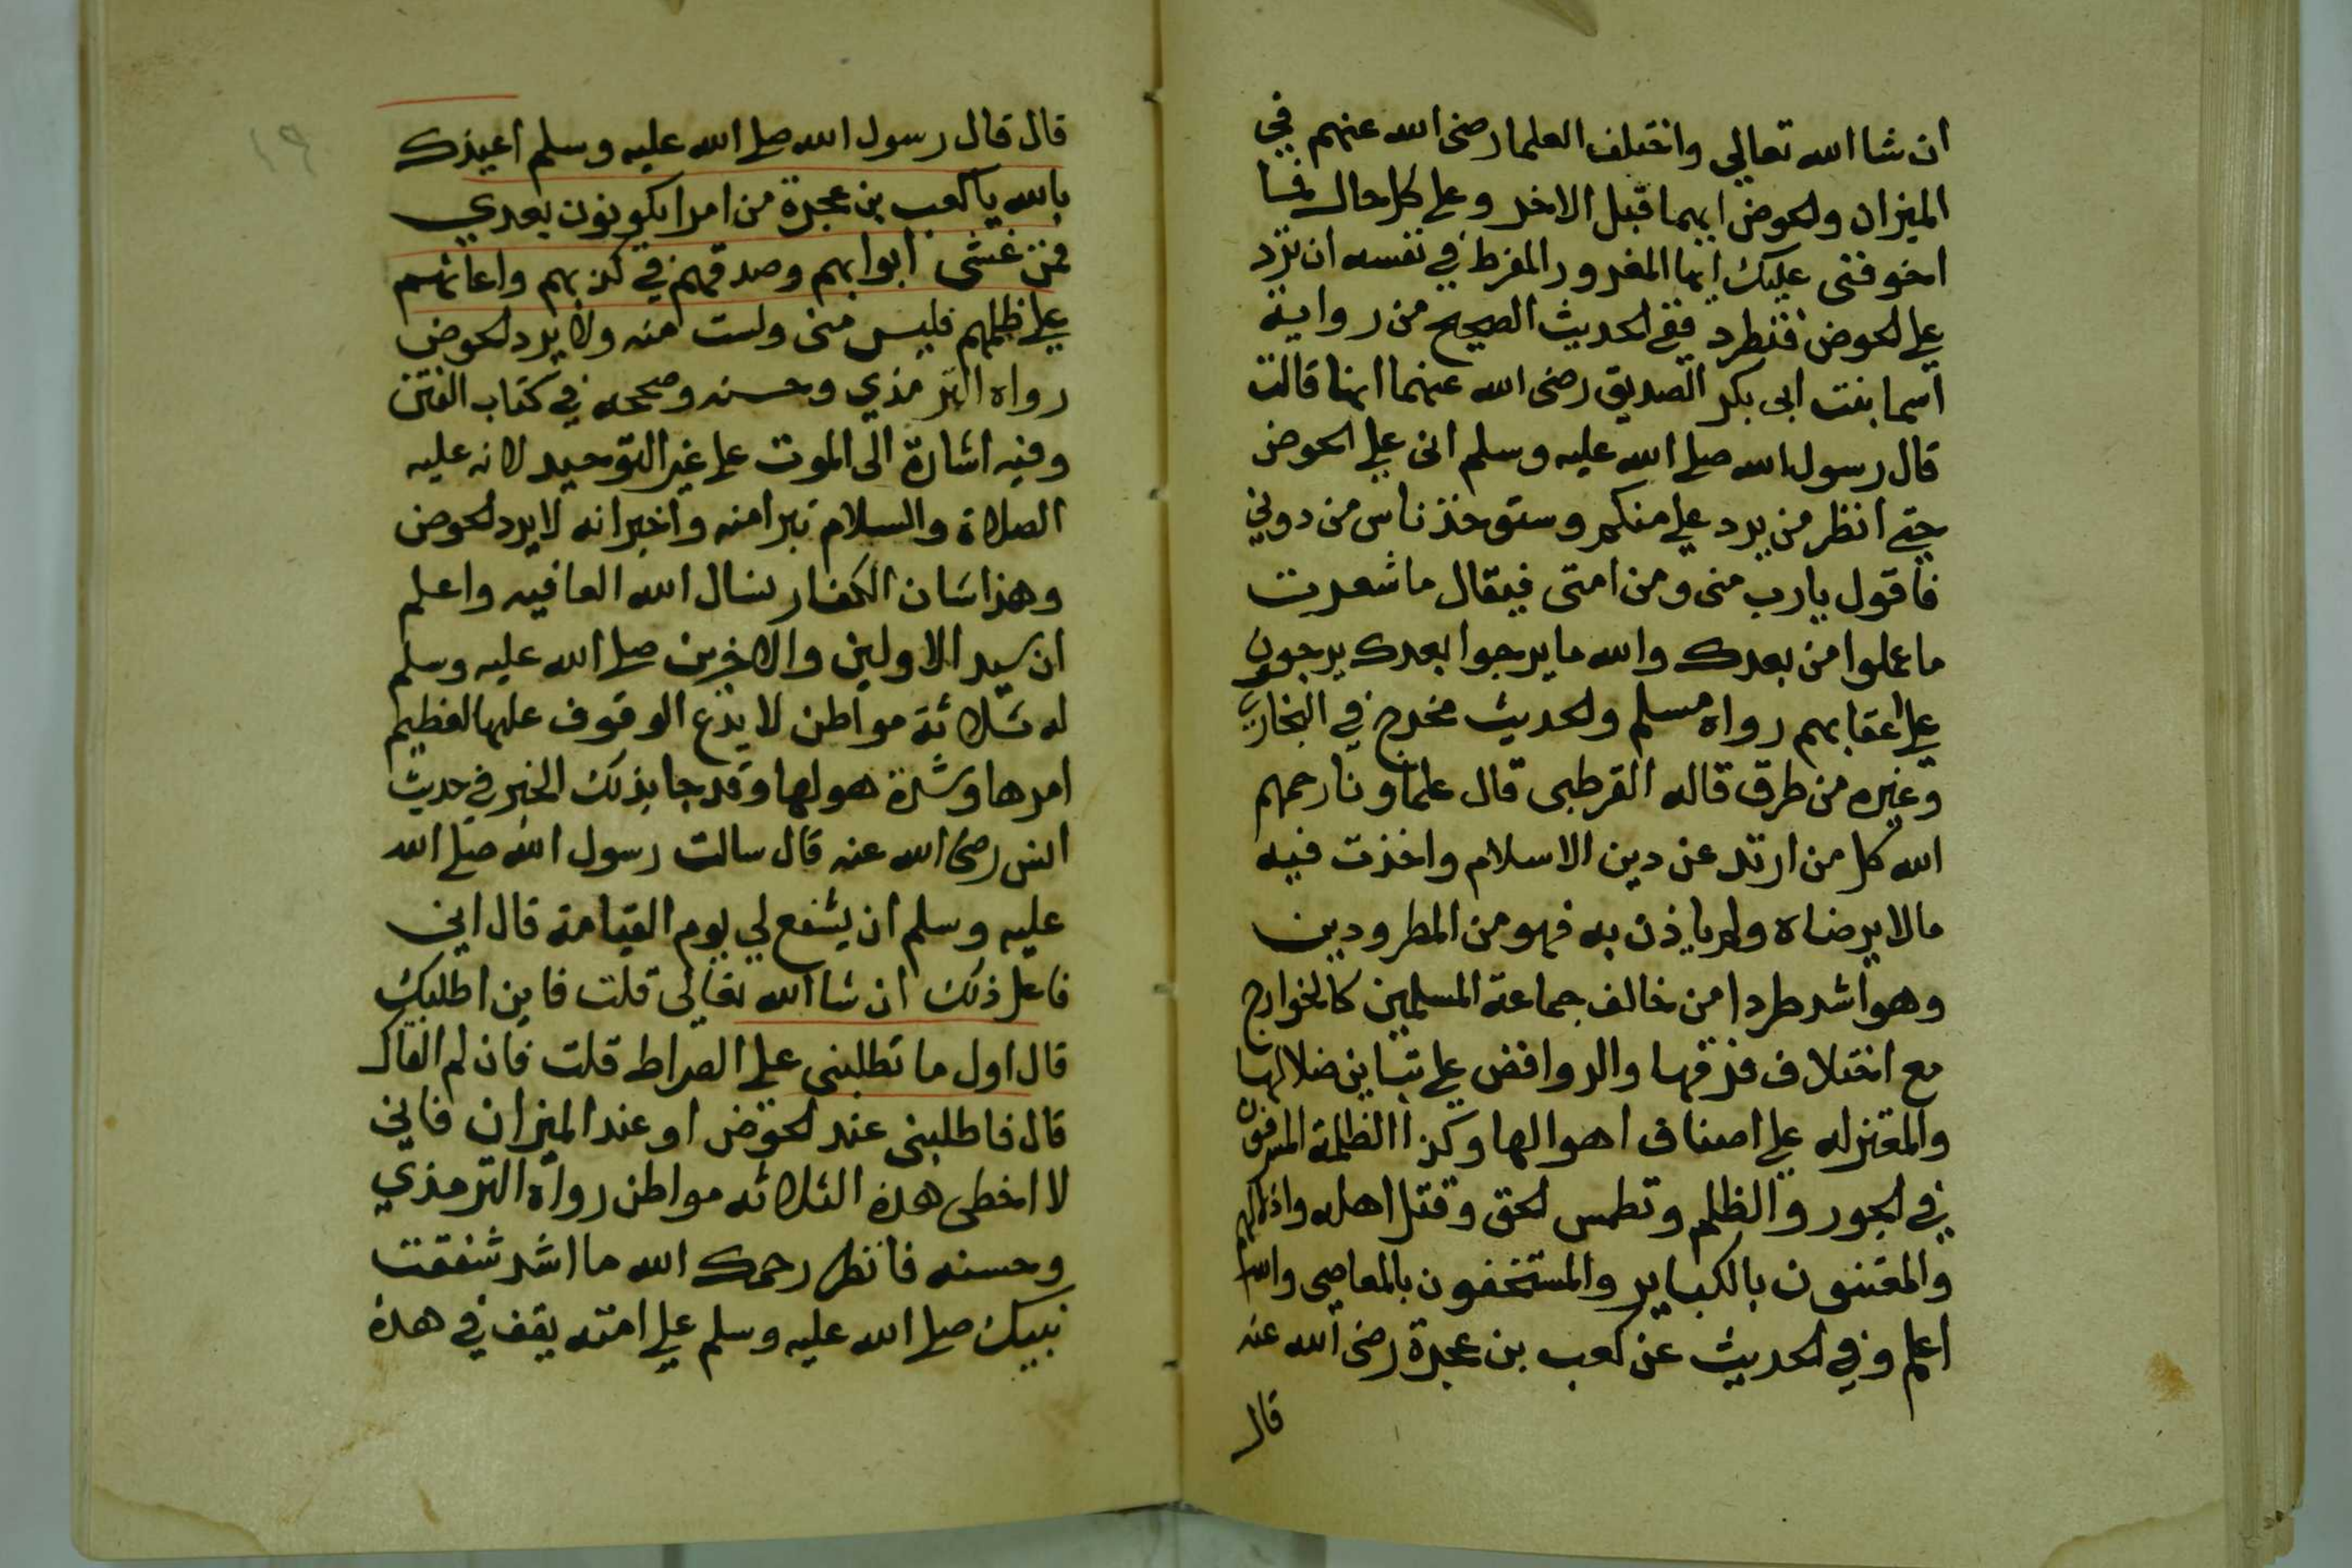 ان شا الله تعالي واختلف العلما رضى الله عنهم في
الميزان ولحوض ايهما قبل الاخر وعلى كل حال فما
اخوفنى عليك ايها المغرور المفرط في نفسه ان ترد
علي لحوض فتطرد ففي لحديث الصحيح من رواية
اسما بنت ابى بكر الصديق رضى الله عنهما انها قالت
قال رسول الله صلى الله عليه وسلم انى علي الحوض
حتى انظر من يرد علي منكم وستوخذ ناس من دوني
فاقول يارب منى ومن امتى فيقال ما شعرت
ما عملوا من بعدك والله ما يرجوا بعدك يرجعون
على اعقابهم رواه مسلم ولحديث مخرج في البخاري
وغيره من طرق قاله القرطبى قال علماونا رحمهم
الله كل من ارتد عن دين الاسلام واخذت فيه
مالا يرضاه ولم ياذن به فهو من المطرودين
وهو اشد طردا من خالف جماعة المسلمين كالخوارج
مع اختلاف فرقها والروافض على تباين ضلالها
والمعتزله على اصناف اهوالها وكذا الظلمة المسرفون
في لجور والظلم وتطمس لحق وقتل اهله واذلالهم
والمعتنون بالكباير والمستخفون بالمعاصى والله
اعلم وفي لحديث عن كعب بن عجرة رضى الله عنه
قال
١٩
قال قال رسول الله صلى الله عليه وسلم اعيذك
بالله يا كعب بن عجرة من امرا يكونون بعدي
فمن غشى ابوابهم وصدقهم في كذبهم واعانهم
على ظلمهم فليس منى ولست منه ولا يرد لحوض
رواه الترمذي وحسنه وصححه في كتاب الفتن
وفيه اشارة الى الموت على غير التوحيد لانه عليه
الصلاة والسلام تبرا منه واخبر انه لا يرد لحوض
وهذا شان الكفار نسال الله العافيه واعلم
ان سيد الاولين والاخرين صلى الله عليه وسلم
له ثلاثة مواطن لا يدع الوقوف عليها لعظيم
امرها وشدة هولها وقد جا بذلك الخبر في حديث
انس رضى الله عنه قال سالت رسول الله صلى الله
عليه وسلم ان يشفع لي يوم القيامة قال اني
فاعل ذلك ان شا الله تعالى قلت فاين اطلبك
قال اول ما تطلبنى على الصراط قلت فان لم القاك
قال فاطلبنى عند لحوض او عند الميزان فاني
لا اخطى هذه الثلاثه مواطن رواه الترمذي
وحسنه فانظر رحمك الله ما اشد شفقت
نبيك صلى الله عليه وسلم علي امته يقف في هذه